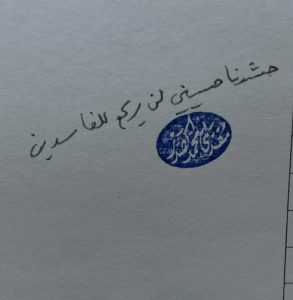 حشدنا حسيني لن يركع للفاسدين